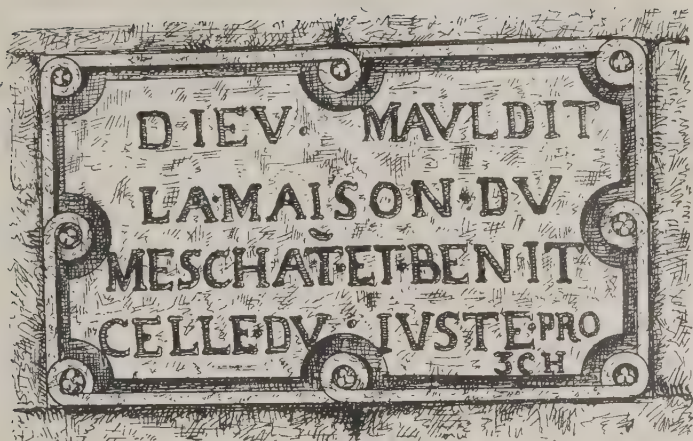 DIEV· MAVLDIT
LA·MAISON·DV
MESCHÃT·ET·BENIT
CELLE·DV·IVSTE·PRO
3CH